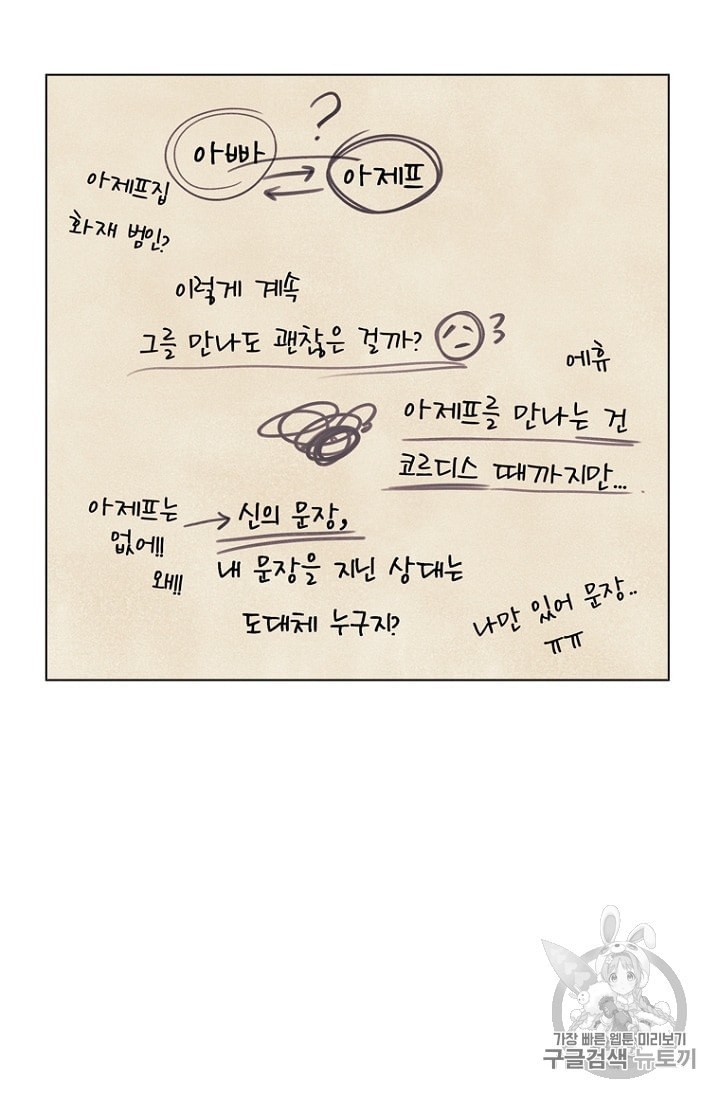 ?
아빠
아제프
아제프집
화재 범인?
이렇게 계속
그를 만나도 괜찮은 걸까?
?
에휴
아제프를 만나는 건
코르디스 때까지만...
아제프는
없어!!
왜!!
신의 문장,
내 문장을 지닌 상대는
도대체 누구지?
나만 있어 문장..
ㅠㅠ
가장 빠른 웹툰 미리보기
구글검색 뉴토끼